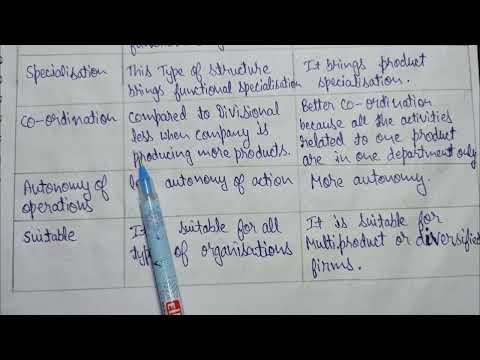 Specialisation
This Type of structure
brings functional specialisation
It brings product
specialisation.
Co-ordination
Compared to Divisional
less when company is
producing more products.
Better Co-ordination
because all the activities
related to one product
are in one department only
Autonomy of
operations
autonomy of action
More autonomy.
Suitable
It suitable for all
of organisations
It is suitable for
Multiproduct or diversified
firms.